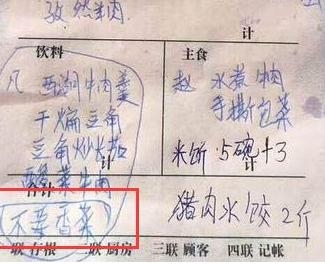 孜然羊肉
计
饮料
主食
凡 西湖牛肉羹
干煸豆角
豆角炒茄
酸菜牛肉
不要香菜
赵 水煮牛肉
手撕包菜
米饭 5碗+3
计
猪肉水饺2斤
计
合计
二联 厨房 三联 顾客 四联 记帐